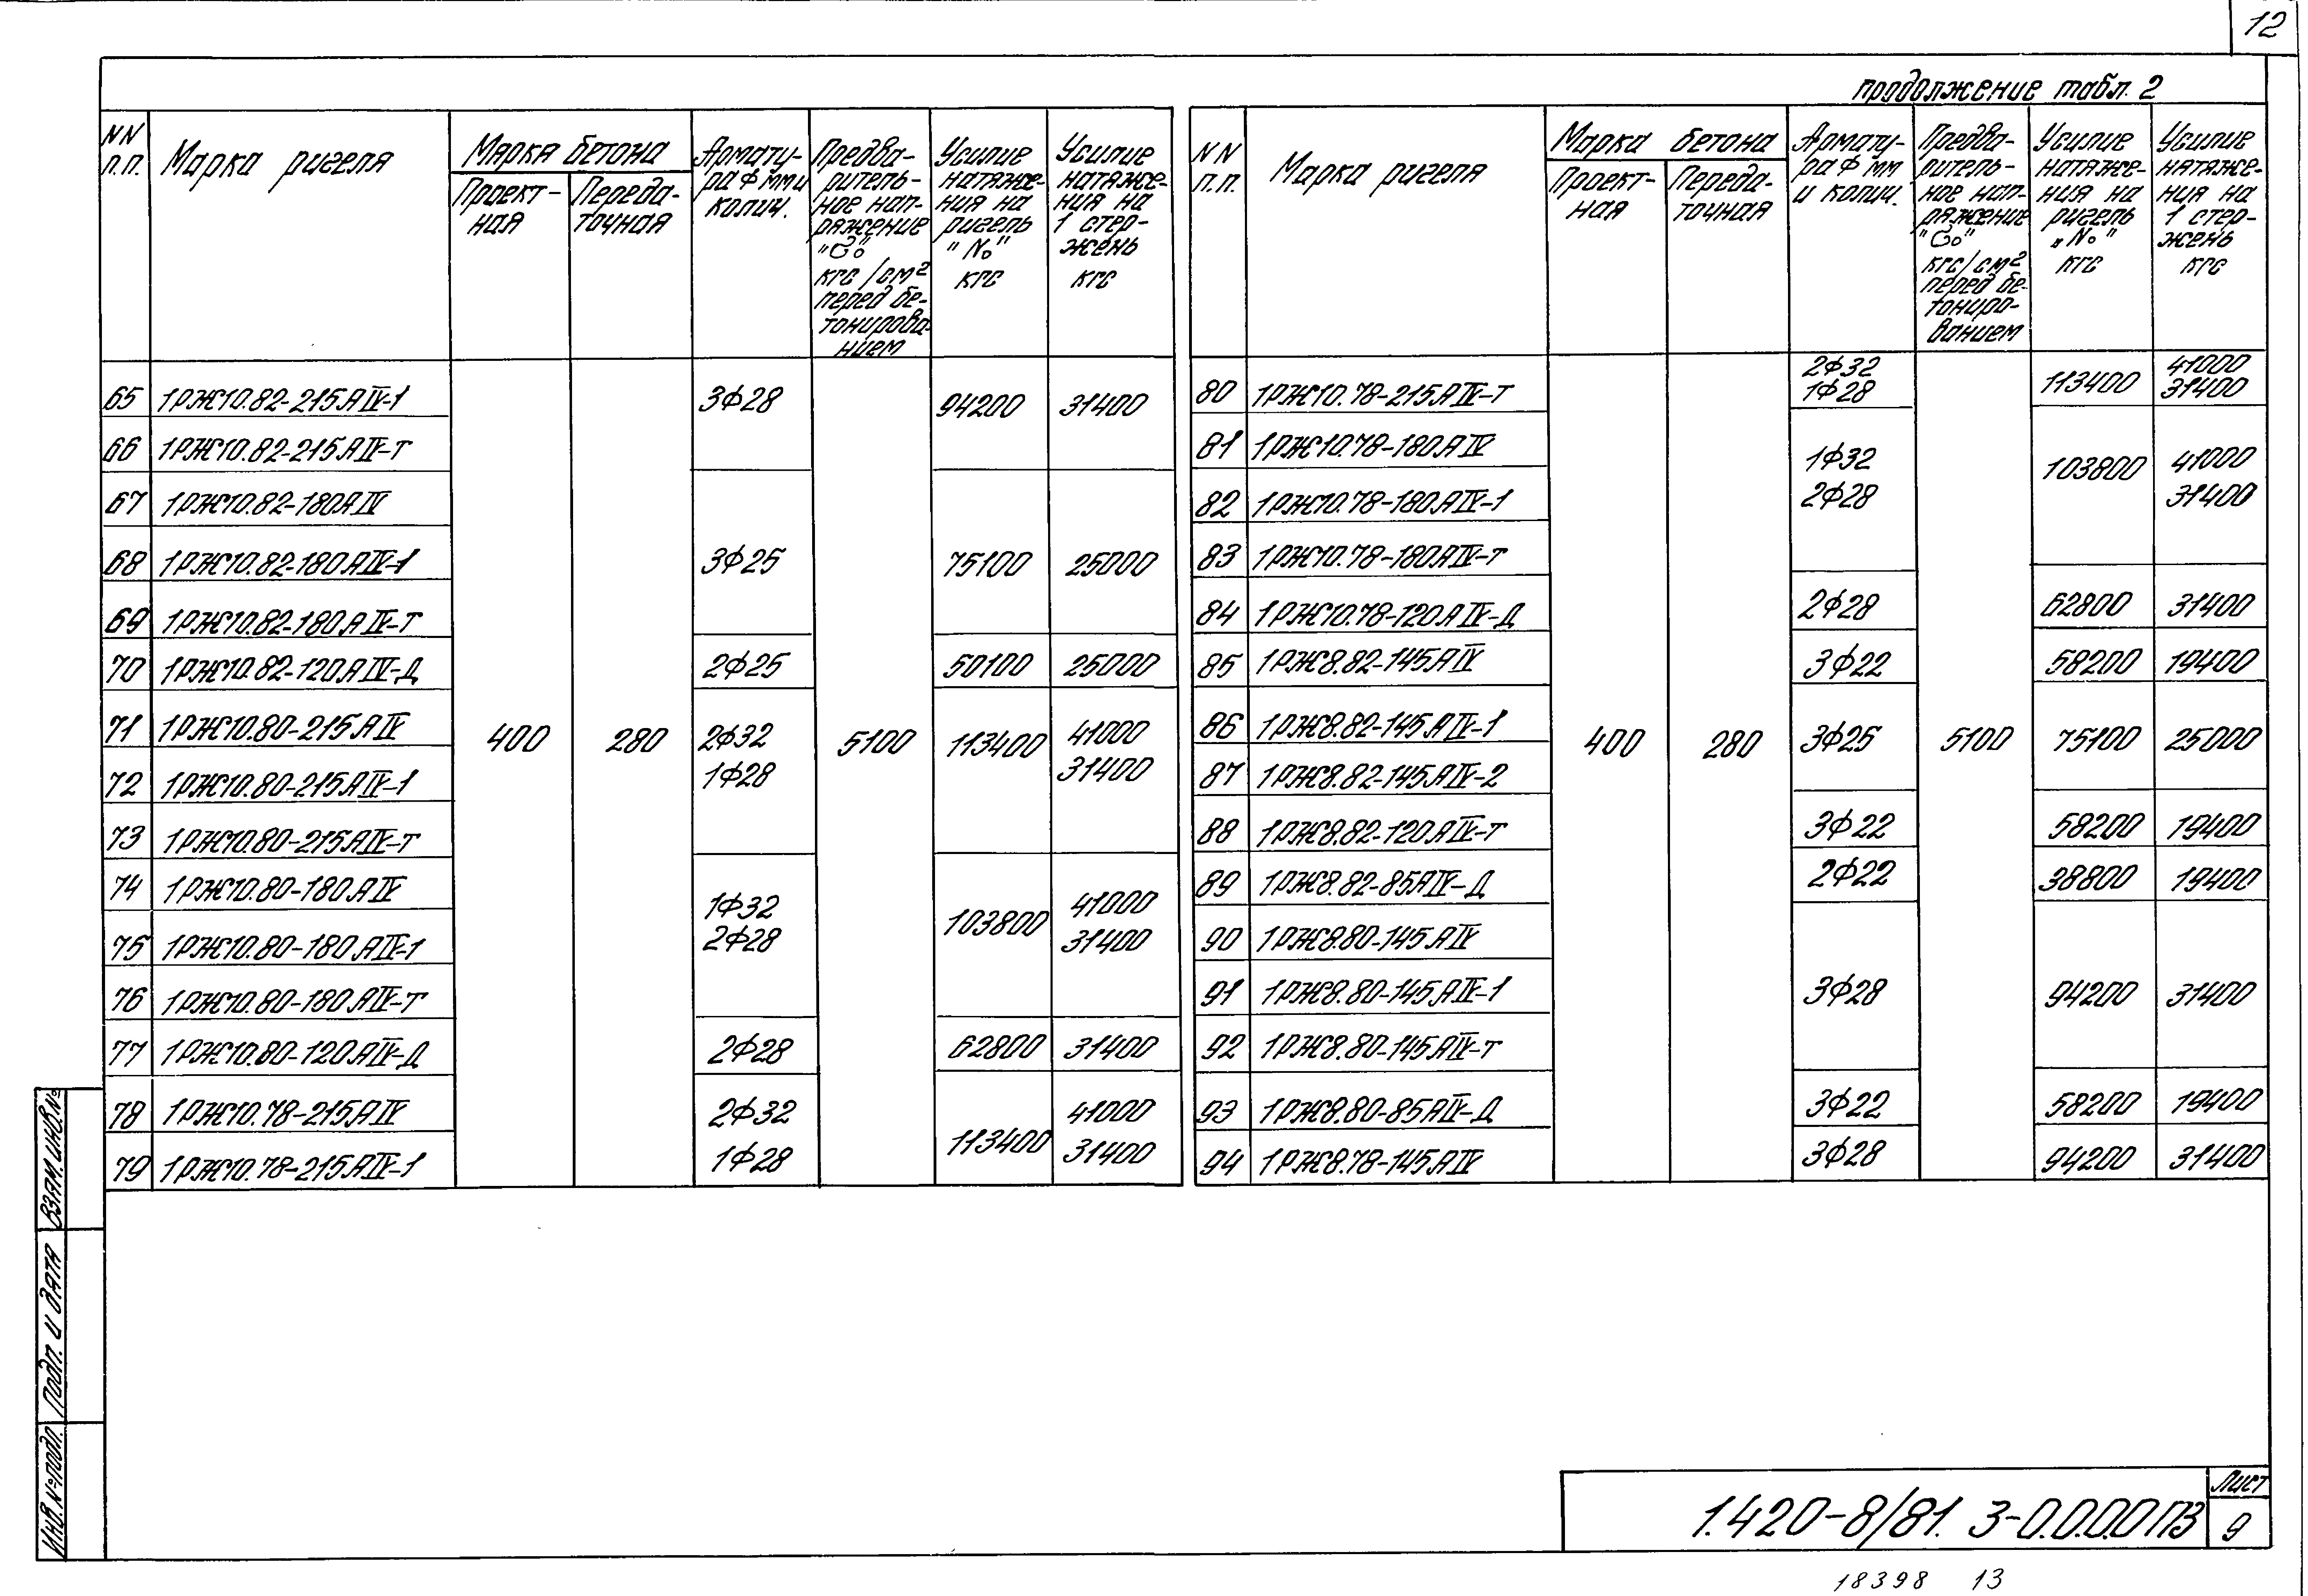 12
продолжение табл. 2
NN п.п. Марка ригеля Марка бетона Проект-ная Переда-точная Армату-ра Ф мм и колич. Предва-ритель-ное нап-ряжение "б₀" кгс/см² перед бе-тонирова-нием Усилие натяже-ния на ригель "N₀" кгс Усилие натяже-ния на 1 стер-жень кгс
65 1РЖ10.82-215АIV-1 3Ф28 94200 31400
66 1РЖ10.82-215АIV-т
67 1РЖ10.82-180АIV
68 1РЖ10.82-180АIV-1 3Ф25 75100 25000
69 1РЖ10.82-180АIV-т
70 1РЖ10.82-120АIV-Д 2Ф25 50100 25000
71 1РЖ10.80-215АIV 400 280 2Ф32 5100 113400 41000
72 1РЖ10.80-215АIV-1 1Ф28 31400
73 1РЖ10.80-215АIV-т
74 1РЖ10.80-180АIV 1Ф32 103800 41000
75 1РЖ10.80-180АIV-1 2Ф28 31400
76 1РЖ10.80-180АIV-т
77 1РЖ10.80-120АIV-Д 2Ф28 62800 31400
78 1РЖ10.78-215АIV 2Ф32 113400 41000
79 1РЖ10.78-215АIV-1 1Ф28 31400
NN п.п. Марка ригеля Марка бетона Проект-ная Переда-точная Армату-ра Ф мм и колич. Предва-ритель-ное нап-ряжение "б₀" кгс/см² перед бе-тониро-ванием Усилие натяже-ния на ригель "N₀" кгс Усилие натяже-ния на 1 стер-жень кгс
80 1РЖ10.78-215АIV-т 2Ф32 1Ф28 113400 41000 31400
81 1РЖ10.78-180АIV 1Ф32 103800 41000
82 1РЖ10.78-180АIV-1 2Ф28 31400
83 1РЖ10.78-180АIV-т
84 1РЖ10.78-120АIV-Д 2Ф28 62800 31400
85 1РЖ8.82-145АIV 3Ф22 58200 19400
86 1РЖ8.82-145АIV-1 400 280 3Ф25 5100 75100 25000
87 1РЖ8.82-145АIV-2
88 1РЖ8.82-120АIV-т 3Ф22 58200 19400
89 1РЖ8.82-85АIV-Д 2Ф22 38800 19400
90 1РЖ8.80-145АIV
91 1РЖ8.80-145АIV-1 3Ф28 94200 31400
92 1РЖ8.80-145АIV-т
93 1РЖ8.80-85АIV-Д 3Ф22 58200 19400
94 1РЖ8.78-145АIV 3Ф28 94200 31400
Взам.инв.№
Подп. и дата
Инв.№подл.
1.420-8/81. 3-0.0.0.0ПЗ
Лист
9
18398 13